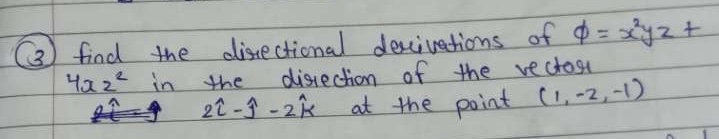 ③ find the directional derivations of ϕ = x²yz +
4xz² in the direction of the vector
2î - ĵ - 2k̂ at the point (1, -2, -1)